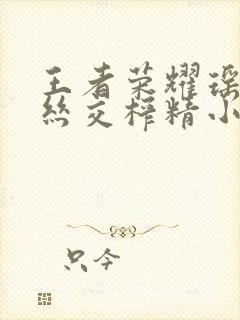 王者荣耀瑶
丝交榨精小
只今